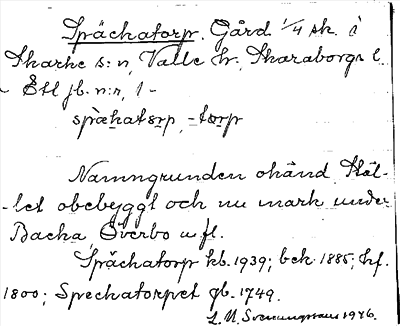 Spächatorp. Gård 1/4 sk. i
Skarke s:n, Valle hr. Skaraborgs l.
- Ett jb. n:r, 1 -
spächatȯrp, -tȯrp
Namngrunden okänd. Stäl-
-let obebyggt och nu mark under
Backa, Överbo m fl.
Spächatorp kb. 1939; bek. 1885; hf.
1800; Spechatorpet jb. 1749.
1946.